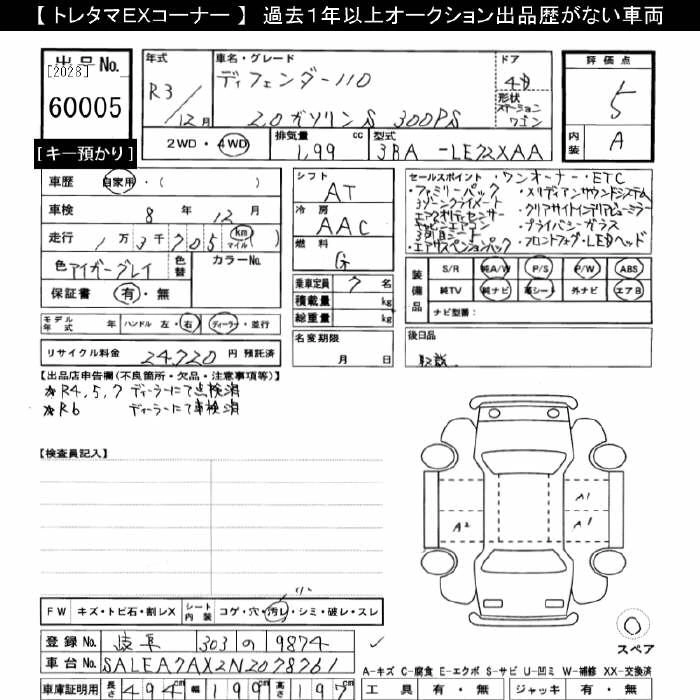 【 トレタマEXコーナー 】 過去1年以上オークション出品歴がない車両
出品No.
[2028]
60005
[キー預かり]
年式
R3/12月
車名・グレード
ディフェンダー110
2.0ガソリンS 300PS
ドア
4D
形状
ステーション
ワゴン
評価点
5
内装
A
2WD・4WD
排気量
1,99 cc
型式
3BA -LE72XAA
車歴
自家用・( )
車検
8 年 12 月
走行
1万3千705 Km マイル ( )
色 アイガーグレイ
色替
カラーNo.
保証書 有・無
モデル年式 年 ハンドル 左・右 ディーラー・並行
リサイクル料金 24,720 円 預託済
シフト
AT
冷房
AAC
燃料
G
乗車定員 7 名
積載量 kg
総重量 kg
名変期限
月 日
セールスポイント ・ワンオーナー ・ETC
・ファミリーパック ・メリディアンサウンドシステム
3ゾーンクライメート ・クリアサイトインテリアビューミラー
エアクオリティセンサー ・プライバシーガラス
キャビンエアコン ・フロントフォグ・LEDヘッド
3列目シート
・エアサスペンションパック
装備品
S/R 純A/W P/S P/W ABS
純TV 純ナビ 革シート 外ナビ エアB
ナビ型番:
後日品
取説
【出品店申告欄(不良箇所・欠品・注意事項等)】
☆R4,5,7 ディーラーにて点検済
☆R6 ディーラーにて車検済
【検査員記入】
A2
A1
A1
スペア
FW キズ・トビ石・割レX シート内装 コゲ・穴・汚レ・シミ・破レ・スレ
登録No. 岐阜 303 の 9874
車台No. SALEA7AX2N2078761
A-キズ C-腐食 E-エクボ S-サビ U-凹ミ W-補修 XX-交換済
車庫証明用 長さ 494cm 幅 199cm 高さ 197cm
工具 有・無 ジャッキ 有・無